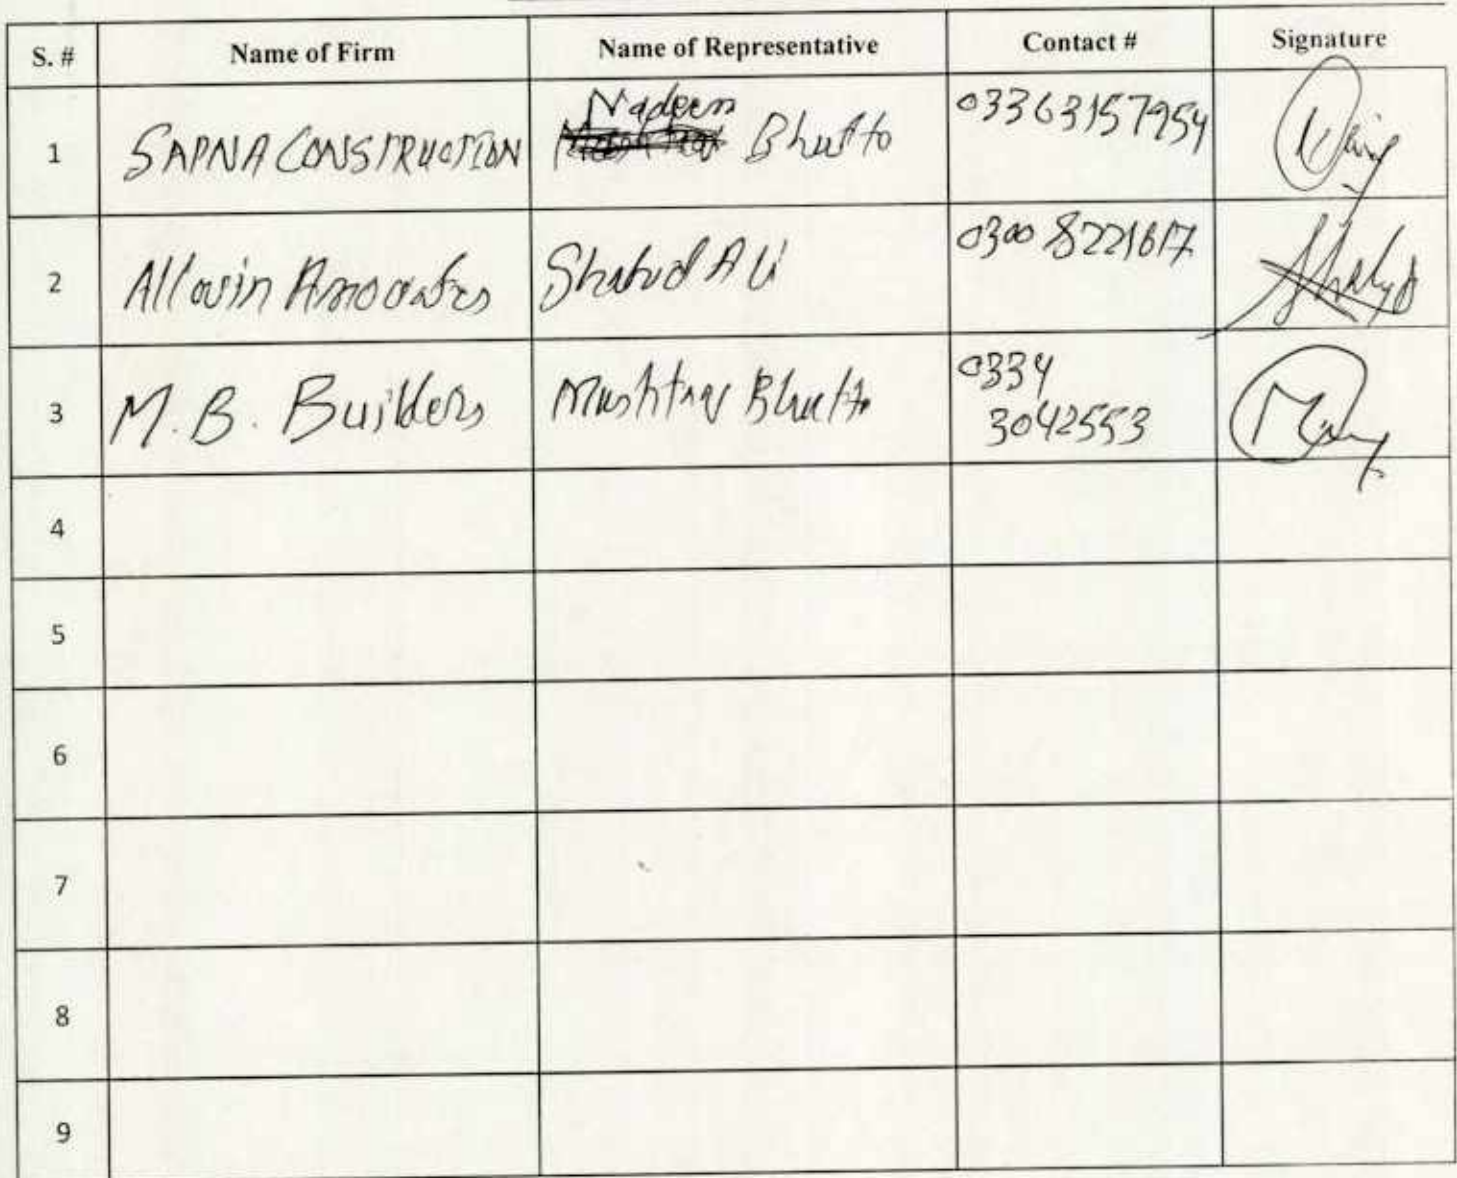 S. # Name of Firm Name of Representative Contact # Signature
Nadeem
1 SAPNA CONSTRUCTION Bhutto 03363157954
2 Allowin Associates Shahid Ali 0300 8221617
3 M.B. Builders Mushtaq Bhutto 0334
3042553
4
5
6
7
8
9